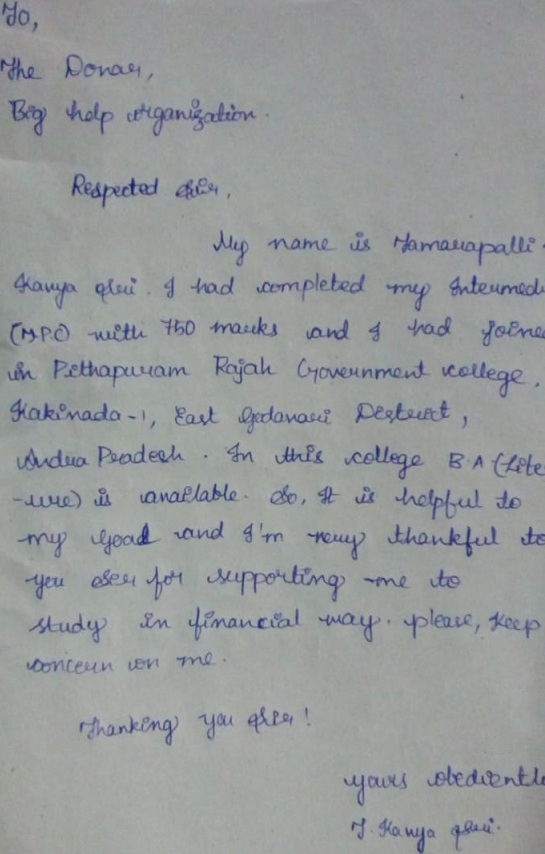 To,
The Donar,
Big help organization.
Respected sir,
My name is Tamarapalli
Kanya sri. I had completed my Intermed
(M.P.C) with 750 marks and I had joine
in Pithapuram Rajah Government college,
Kakinada-1, East Godavari District,
Andra Pradesh. In this college B.A (Lite
-ure) is available. So, It is helpful to
my goal and I'm very thankful to
you sir for supporting me to
study in financial way. please, keep
concern on me.
Thanking you sir!
yours obedientl
T. Kanya sri.